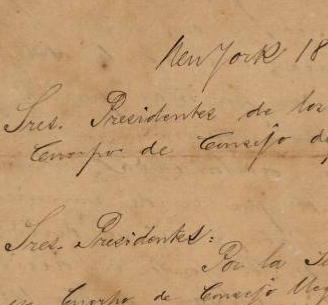 New York 18
Sres. Presidentes de los
Cuerpo de Consejo de
Sres. Presidentes:
Por la
en Cuerpo de Consejo